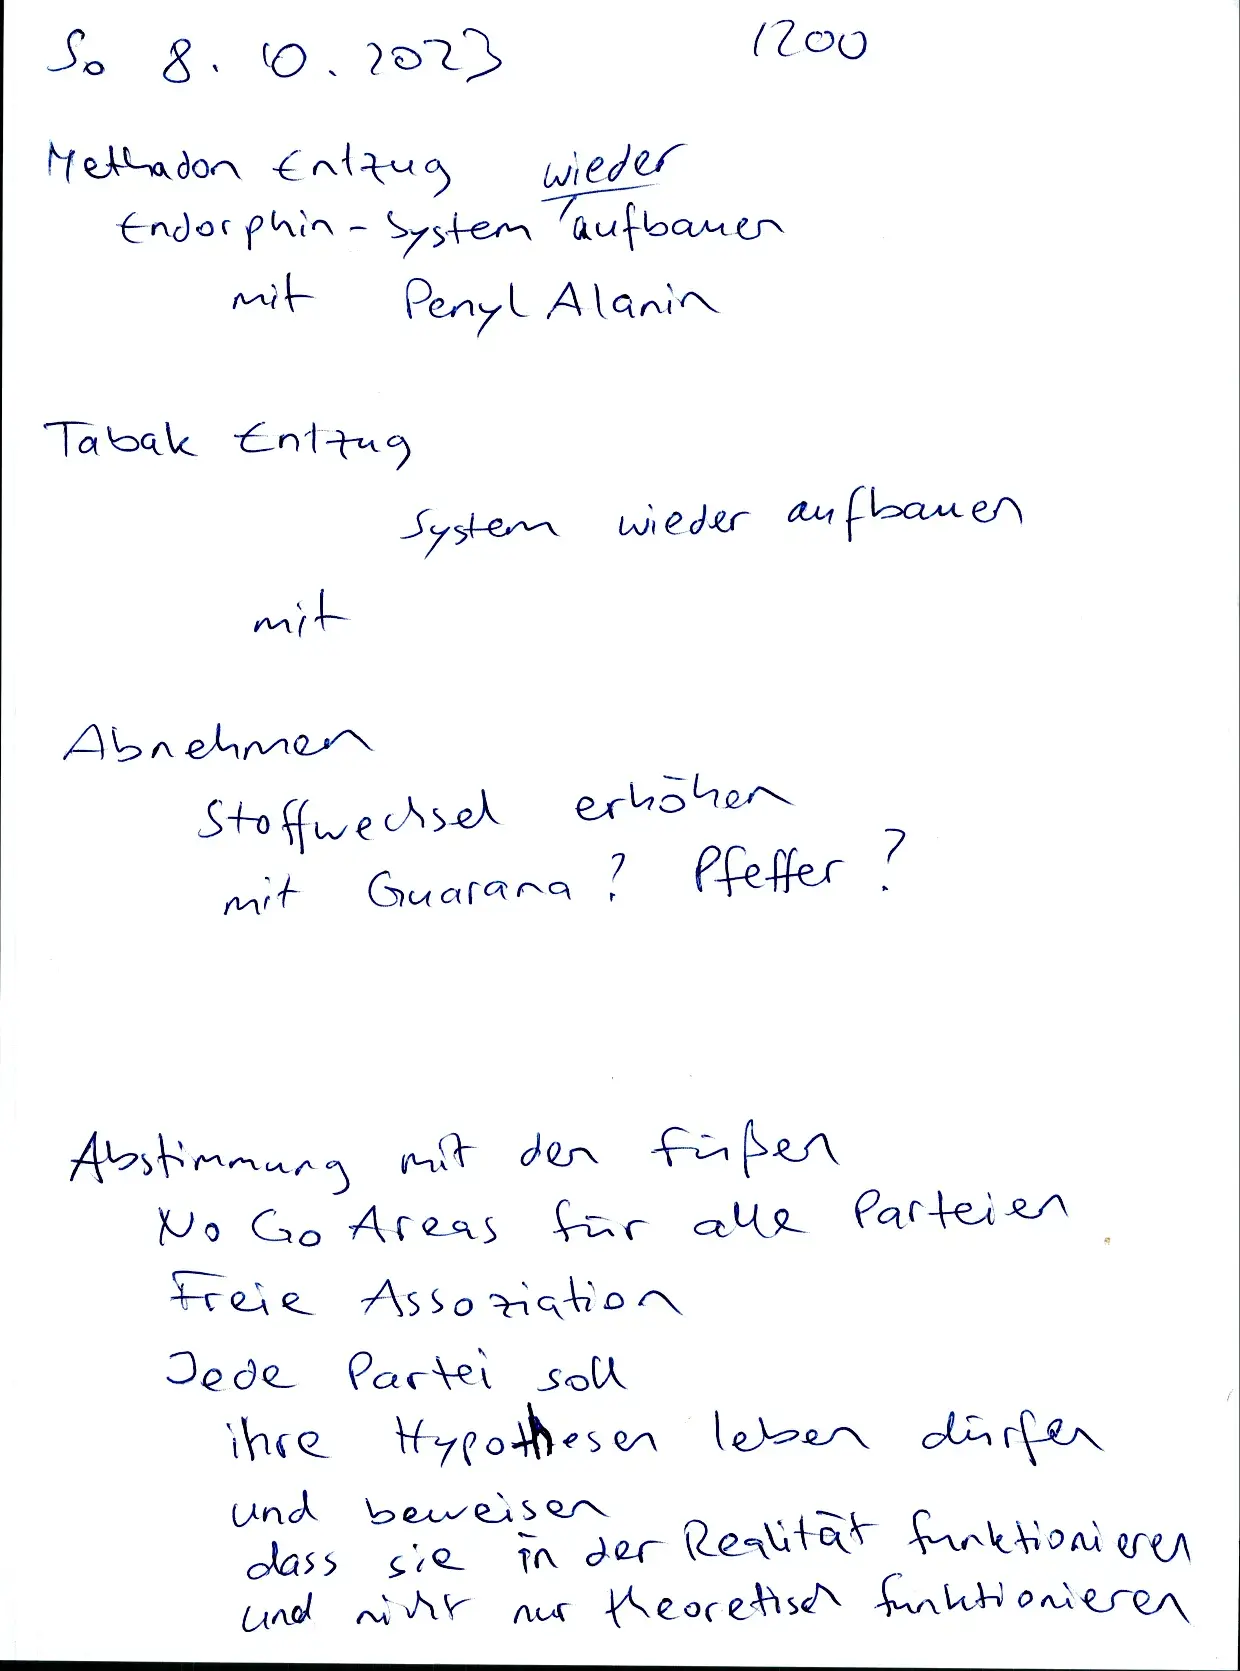 So 8. 10. 2023 1200
Methadon Entzug wieder
Endorphin-System aufbauen
mit Penyl Alanin
Tabak Entzug
System wieder aufbauen
mit
Abnehmen
Stoffwechsel erhöhen
mit Guarana? Pfeffer?
Abstimmung mit den Füßen
No Go Areas für alle Parteien
Freie Assoziation
Jede Partei soll
ihre Hypothesen leben dürfen
und beweisen
dass sie in der Realität funktionieren
und nicht nur theoretisch funktionieren